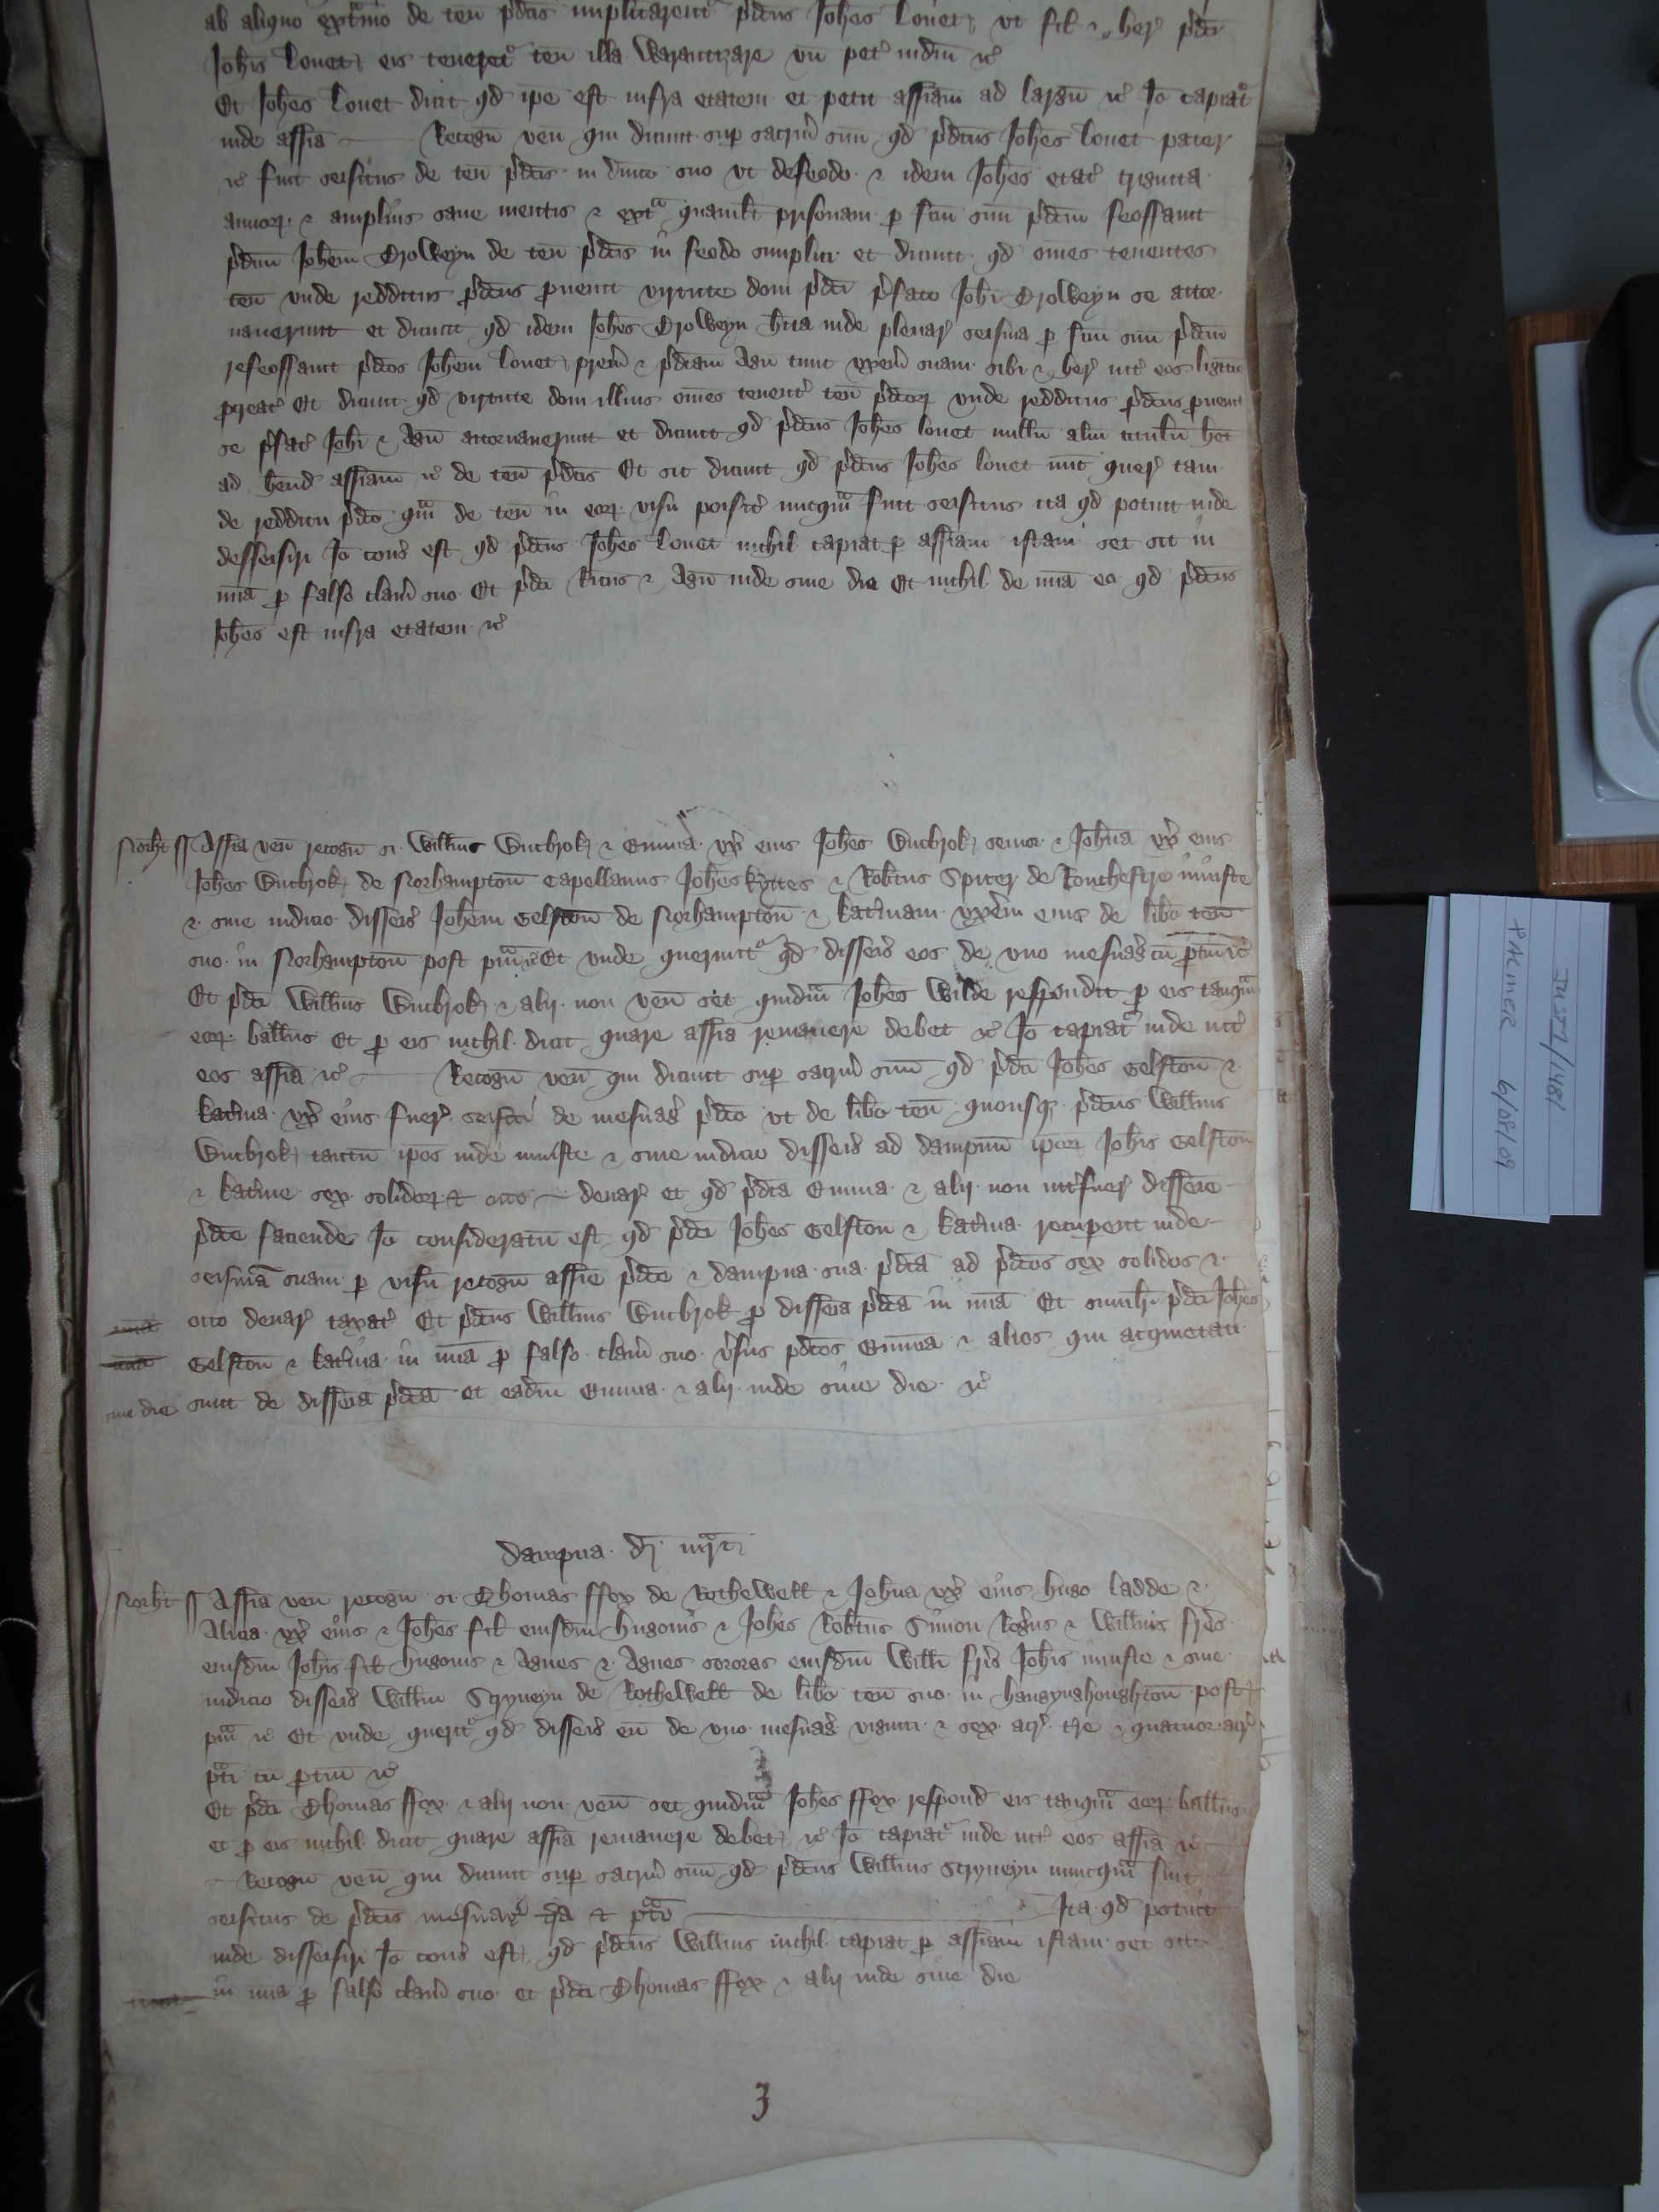 ab aliquo ext̃mo de teñ p̃dc̃is implitarent᷑ p̃dc̃us Joh̃es Louet vt fil̃ ⁊ her̃ p̃dc̃i
Joh̃is Louet eis teneret᷑ teñ illa Warantizare vñ pet᷑ iudm̃ ⁊c̃
Et Joh̃es Louet dicit qd̃ ip̃e est infra etatem et petit assĩam ad largũ ⁊c̃ Jõ capiat᷑
inde assĩa Recogñ veñ qui dicunt sup̃ sacr̃m suũ qd̃ p̃dc̃us Joh̃es Louet pater
⁊c̃ fuit seisitus de teñ p̃dc̃is in dñico suo vt de feodo ⁊ idem Joh̃es etat᷑ triginta
annor̃ ⁊ amplius sane mentis ⁊ ext̃ quamlt̃ prisonam p̃ fc̃m suũ p̃dc̃m feoffauit
p̃dc̃m Joh̃em Trolweyn de teñ p̃dc̃is in feodo simplici et dicunt qd̃ om̃es tenentes
teñ vnde redditus p̃dc̃us p̃uenit virtute doni p̃dc̃i p̃fato Joh̃i Trolweyn se attor
nauerunt et dicunt qd̃ idem Joh̃es Trolweyn h̃ita inde plenar̃ seisina p̃ fc̃m suũ p̃dc̃m
refeoffauit p̃dc̃os Joh̃em Louet prẽm ⁊ p̃dc̃am Agñ tunc vxẽm suam sibi ⁊ her̃ int᷑ eos ligitĩe
p̃creat᷑ Et dicunt qd̃ virtute doni illius om̃es tenent᷑ teñ p̃dc̃or̃ vnde redditus p̃dc̃us p̃uenit
se p̃fat᷑ Joh̃i ⁊ Agñ attornauerunt et dicunt qd̃ p̃dc̃us Joh̃es Louet nullũ aliũ titulũ h̃et
ad h̃end̃ assĩam ⁊c̃ de teñ p̃dc̃is Et sic dicunt qd̃ p̃dc̃us Joh̃es Louet nũc quer̃ tam
de redditu p̃dc̃o qm̃ de teñ in eor̃ visu posit᷑ nuncqm̃ fuit seisitus ita qd̃ potuit inde
disseisiri Jõ cons̃ est qd̃ p̃dc̃us Joh̃es Louet nichil capiat p̃ assĩam istam set sit in
mĩa p̃ falso clam̃ suo Et p̃dc̃i Ric̃us ⁊ Agñ inde sine die Et nichil de mĩa eo qd̃ p̃dc̃us
Joh̃es est infra etatem ⁊c̃
Norht̃ ss Assĩa veñ recogñ si Will̃ms Gutbrok ⁊ Emma vx̃ eius Joh̃es Gutbrok senior ⁊ Joh̃na vx̃ eius
Joh̃es Gutbrok de Norhamptoñ Capellanus Joh̃es Kyttes ⁊ Rob̃tus Spicer de Rouchestre iniuste
⁊ sine iudicio disseis̃ Joh̃em Gelstoñ de Norhamptoñ ⁊ Kat̃inam vxẽm eius de lib̃o teñ
suo in Norhamptoñ post pm̃ ⁊c̃ Et vnde querunt᷑ qd̃ disseis̃ eos de vno mesuag̃ cũ p̃tiñ ⁊c̃
Et p̃dc̃i Will̃ms Gutbrok ⁊ alij non veñ set quidm̃ Joh̃es Wilde respondit p̃ eis tanqm̃
eor̃ ball̃us Et p̃ eis nichil dicit quare assĩa remanere debet ⁊c̃ Jõ capiat᷑ inde int᷑
eos assĩa ⁊c̃ Recogñ veñ qui dicunt sup̃ sacr̃m suũ qd̃ p̃dc̃i Joh̃es Gelstoñ ⁊
Kat̃ina vx̃ eius fuer̃ seisiti de mesuag̃ p̃dc̃o vt de lib̃o teñ quousq̃ p̃dc̃us Will̃ms
Gutbrok tantũ ip̃os inde iniuste ⁊ sine iudicio disseis̃ ad dampnũ ip̃or̃ Joh̃is Gelstoñ
⁊ Kat̃ine sex solidor̃ & octo denar̃ et qd̃ p̃dc̃a Emma ⁊ alij non int᷑fuer̃ disseĩe
p̃dc̃e faciende Jõ consideratũ est qd̃ p̃dc̃i Joh̃es Gelstoñ ⁊ Kat̃ina recup̃ent inde
seisinã suam p̃ visũ recogñ assĩe p̃dc̃e ⁊ dampna sua p̃dc̃a ad p̃dc̃os sex solidos ⁊
mĩa octo denar̃ taxat᷑ Et p̃dc̃us Will̃ms Gutbrok p̃ disseĩa p̃dc̃a in mĩa Et similr̃ p̃dc̃i Joh̃es
mĩa Gelstoñ ⁊ Kat̃ina in mĩa p̃ falso clam̃ suo ṽsus p̃dc̃os Emma ⁊ alios qui acquietati
sine die sunt de disseĩa p̃dc̃a et eadm̃ Emma ⁊ alij inde sine die ⁊c̃
Dampna dj̃ mar̃c
Norht̃ ss Assĩa veñ recogñ si Thomas ffox de Rothewell ⁊ Joh̃na vx̃ eius Hugo Ladde ⁊
Alicia vx̃ eius ⁊ Joh̃es fil̃ eiusdm̃ Hugonis ⁊ Joh̃es Rob̃tus Simon Rog̃us ⁊ Will̃ms fr̃es
eiusdm̃ Joh̃is fil̃ Hugonis ⁊ Agnes ⁊ Agnes sorores eiusdm̃ Will̃i fr̃is Joh̃is iniuste ⁊ sine
iudicio disseis̃ Will̃m Scryueyn de Rothewell de lib̃o teñ suo in Hangynghoughtoñ post
pm̃ ⁊c̃ Et vnde querit᷑ qd̃ disseis̃ eũ de vno mesuag̃ viginti ⁊ sex acr̃ tr̃e ⁊ quatuor acr̃
pr̃ti cũ p̃tiñ ⁊c̃
Et p̃dc̃i Thomas ffox ⁊ alij non veñ set quidm̃ Joh̃es ffox respond̃ eis tanqm̃ eor̃ ball̃us
et p̃ eis nichil dicit quare assĩa remanere debet ⁊c̃ Jõ capiat᷑ inde int᷑ eos assĩa ⁊c̃
Recogñ veñ qui dicunt sup̃ sacr̃m suũ qd̃ p̃dc̃us Will̃ms Scryueyn nuncqm̃ fuit
seisitus de p̃dc̃is mesuag̃ tr̃a & pr̃to Ita qd̃ potuit
inde disseisiri Jõ cons̃ est qd̃ p̃dc̃us Will̃ms nichil capiat p̃ assĩam istam set sit
mĩa in mĩa p̃ falso clam̃ suo et p̃dc̃i Thomas ffox ⁊ alij inde sine die
3
JUST1/1481
PALMER 6/08/09